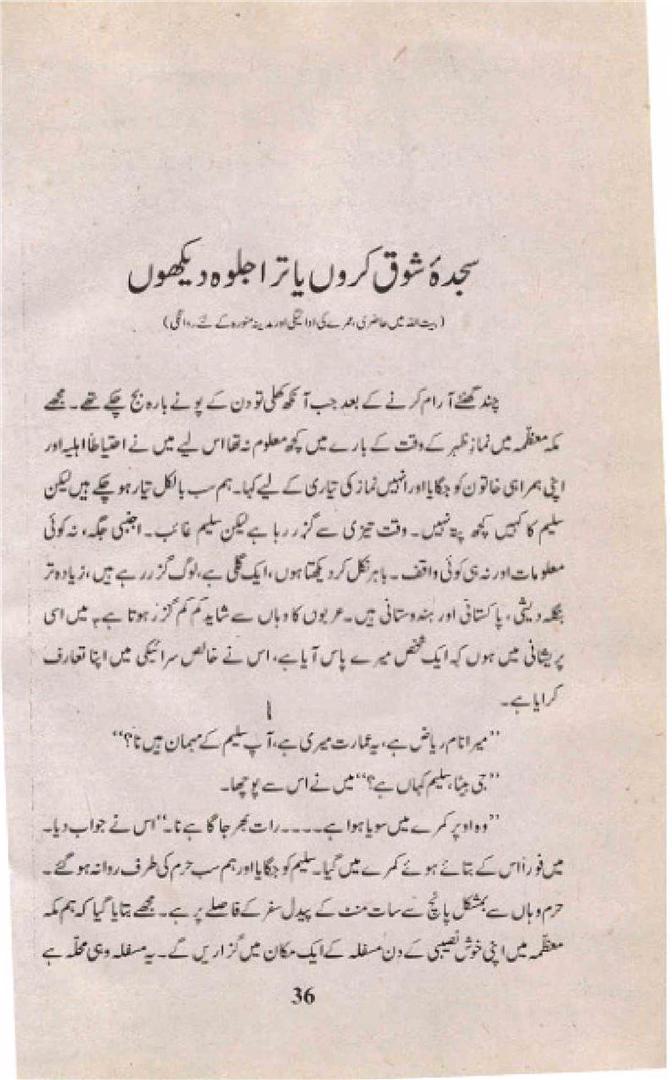 سجدۂ شوق کروں یا ترا جلوہ دیکھوں
(بیت اللہ میں حاضری، عمرے کی ادائیگی اور مدینہ منورہ کے لئے روانگی)
چند گھنٹے آرام کرنے کے بعد جب آنکھ کھلی تو دن کے پونے بارہ بج چکے تھے۔ مجھے
مکہ معظّمہ میں نمازِ ظہر کے وقت کے بارے میں کچھ معلوم نہ تھا اس لیے میں نے احتیاطاً اہلیہ اور
اپنی ہمراہی خاتون کو جگایا اور انہیں نماز کی تیاری کے لیے کہا۔ ہم سب بالکل تیار ہو چکے ہیں لیکن
سلیم کا کہیں کچھ پتہ نہیں۔ وقت تیزی سے گزر رہا ہے لیکن سلیم غائب۔ اجنبی جگہ، نہ کوئی
معلومات اور نہ ہی کوئی واقف۔ باہر نکل کر دیکھتا ہوں، ایک گلی ہے، لوگ گزر رہے ہیں، زیادہ تر
بنگلہ دیشی، پاکستانی اور ہندوستانی ہیں۔ عربوں کا وہاں سے شاید کم کم گزر ہوتا ہے۔ میں اسی
پریشانی میں ہوں کہ ایک شخص میرے پاس آیا ہے، اس نے خالص سرائیکی میں اپنا تعارف
کرایا ہے۔
’’میرا نام ریاض ہے، یہ عمارت میری ہے، آپ سلیم کے مہمان ہیں نا؟‘‘
’’جی بیٹا، سلیم کہاں ہے؟‘‘ میں نے اس سے پوچھا۔
’’وہ اوپر کمرے میں سویا ہوا ہے۔۔۔۔ رات بھر جاگا ہے نا۔‘‘ اس نے جواب دیا۔
میں فوراً اس کے بتائے ہوئے کمرے میں گیا۔ سلیم کو جگایا اور ہم سب حرم کی طرف روانہ ہو گئے۔
حرم وہاں سے بمشکل پانچ سے سات منٹ کے پیدل سفر کے فاصلے پر ہے۔ مجھے بتایا گیا کہ ہم مکہ
معظّمہ میں اپنی خوش نصیبی کے دن مسفلہ کے ایک مکان میں گزاریں گے۔ یہ مسفلہ وہی محلّہ ہے
36